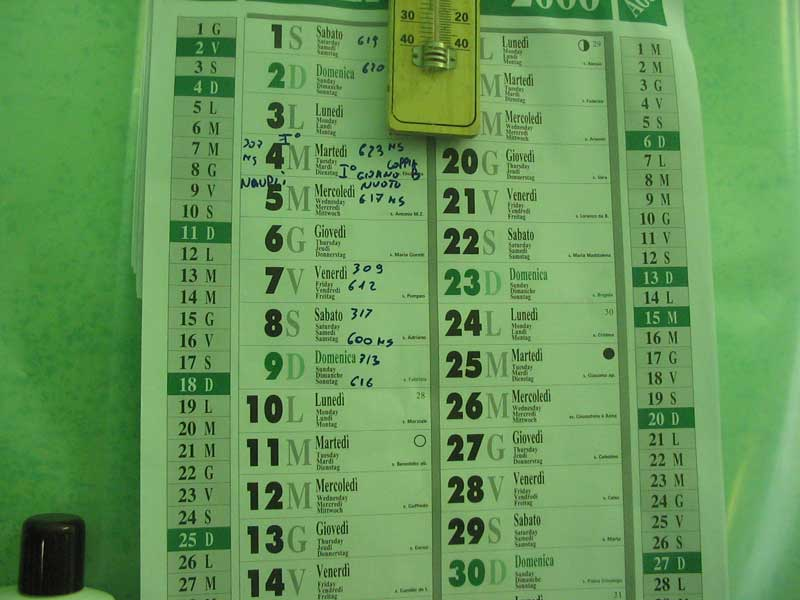 2006
30 20
40 40
1 G
2 V
3 S
4 D
5 L
6 M
7 M
8 G
9 V
10 S
11 D
12 L
13 M
14 M
15 G
16 V
17 S
18 D
19 L
20 M
21 M
22 G
23 V
24 S
25 D
26 L
27 M
1 S Sabato 619
Saturday
Samedi
Samstag
2 D Domenica 620
Sunday
Dimanche
Sonntag
3 L Lunedì
Monday
Lundi
Montag
I°
4 M Martedì 623 NS
Tuesday
Mardi
Dienstag
5 M Mercoledì NUOTO
Wednesday 617 NS
Mercredi
Mittwoch s. Antonio M.Z.
6 G Giovedì
Thursday
Jeudi
Donnerstag s. Maria Goretti
7 V Venerdì 309
Friday 612
Vendredi
Freitag s. Pompeo
8 S Sabato 317
Saturday
Samedi 600 NS
Samstag s. Adriano
9 D Domenica 313
Sunday
Dimanche 616
Sonntag s. Fabrizio
10 L Lunedì 28
Monday
Lundi
Montag
11 M Martedì
Tuesday
Mardi
Dienstag s. Benedetto ab.
12 M Mercoledì
Wednesday
Mercredi
Mittwoch s. Goffredo
13 G Giovedì
Thursday
Jeudi
Donnerstag s. Enrico
14 V Venerdì
Friday
Vendredi
Freitag s. Camillo de L.
L Lunedì 29
Monday
Lundi
Montag s. Alessio
M Martedì
Tuesday
Mardi
Dienstag s. Federico
M Mercoledì
Wednesday
Mercredi
Mittwoch s. Arsenio
20 G Giovedì
Thursday
Jeudi
Donnerstag
21 V Venerdì
Friday
Vendredi
Freitag s. Lorenzo da B.
22 S Sabato
Saturday
Samedi
Samstag s. Maria Maddalena
23 D Domenica
Sunday
Dimanche
Sonntag s. Brigida
24 L Lunedì 30
Monday
Lundi
Montag s. Cristina
25 M Martedì
Tuesday
Mardi
Dienstag s. Giacomo ap.
26 M Mercoledì
Wednesday
Mercredi
Mittwoch ss. Gioacchino & Anna
27 G Giovedì
Thursday
Jeudi
Donnerstag s. Celestino
28 V Venerdì
Friday
Vendredi
Freitag s. Celso
29 S Sabato
Saturday
Samedi
Samstag s. Marta
30 D Domenica
Sunday
Dimanche
Sonntag s. Pietro Crisologo
Lunedì 31
1 M
2 M
3 G
4 V
5 S
6 D
7 L
8 M
9 M
10 G
11 V
12 S
13 D
14 L
15 M
16 M
17 G
18 V
19 S
20 D
21 L
22 M
23 M
24 G
25 V
26 S
27 D
28 L